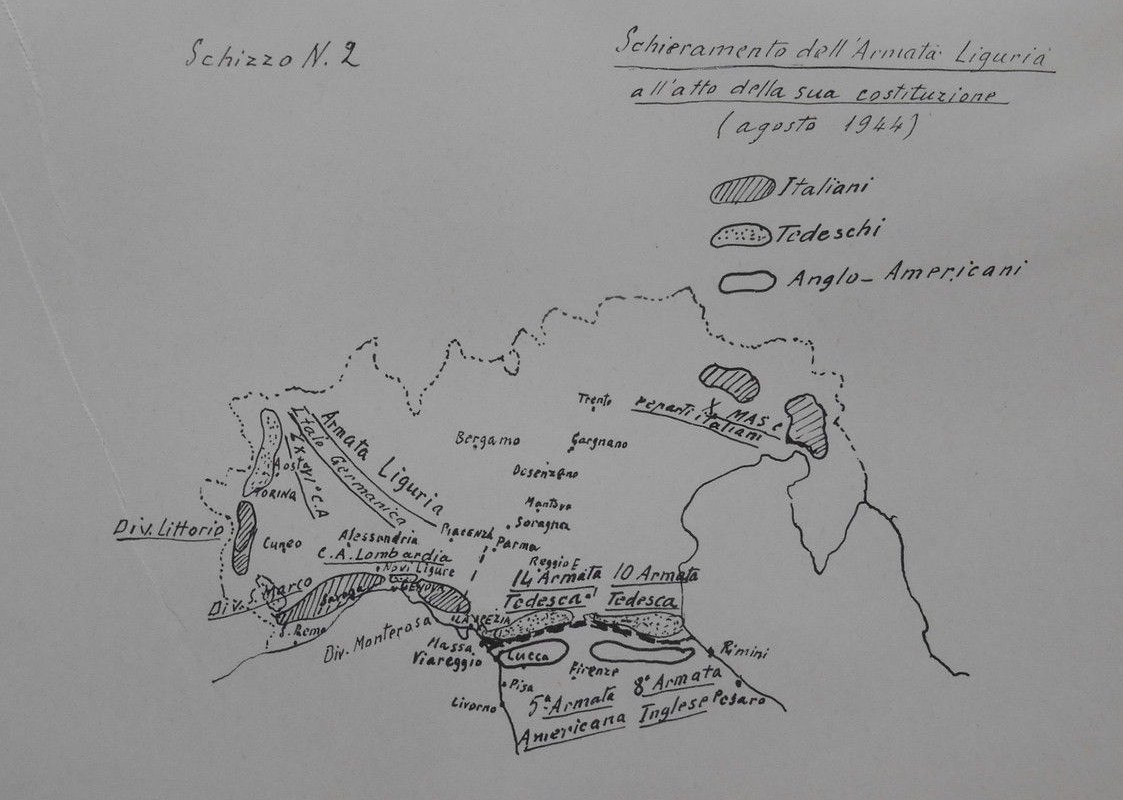 Schizzo N. 2
Schieramento dell'Armata Liguria
all'atto della sua costituzione
(agosto 1944)
Italiani
Tedeschi
Anglo-Americani
Trento
X MAS e
reparti italiani
Armata Liguria
Italo Germanica
C.A
Bergamo
Gargnano
Desenzano
Aosta
TORINO
Mantova
Soragna
Div. Littorio
Cuneo
Alessandria
PIACENZA
Parma
C.A. Lombardia
Novi Ligure
Reggio E.
14 Armata
Tedesca
10 Armata
Tedesca
Div. S. Marco
Savona
GENOVA
S. Remo
Div. Monterosa
LA SPEZIA
Massa
Viareggio
Lucca
Firenze
Rimini
Pisa
Livorno
5ª Armata
Americana
8ª Armata
Inglese
Pesaro